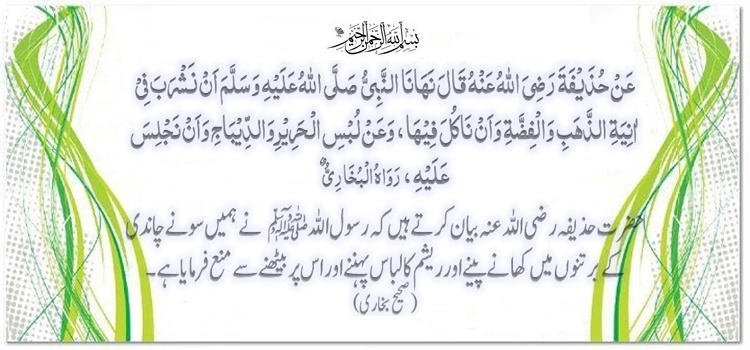 بسم الله الرحمن الرحيم
عَنْ حُذَيْفَةَ رَضِىَ اللهُ عَنْهُ قَالَ نَهَانَا النَّبِىُّ صَلَّى اللهُ عَلَيْهِ وَسَلَّمَ اَنْ نَشْرَبَ فِىْ
اٰنِيَةِ الذَّهَبِ وَالْفِضَّةِ وَاَنْ نَاكُلَ فِيْهَا، وَعَنْ لُبْسِ الْحَرِيْرِ وَالدِّيْبَاجِ وَاَنْ نَجْلِسَ
عَلَيْهِ، رَوَاهُ الْبُخَارِىُّ
حضرت حذیفہ رضی اللہ عنہ بیان کرتے ہیں کہ رسول اللہ ﷺ نے ہمیں سونے چاندی
کے برتنوں میں کھانے پینے اور ریشم کا لباس پہننے اور اس پر بیٹھنے سے منع فرمایا ہے۔
(صحیح بخاری)